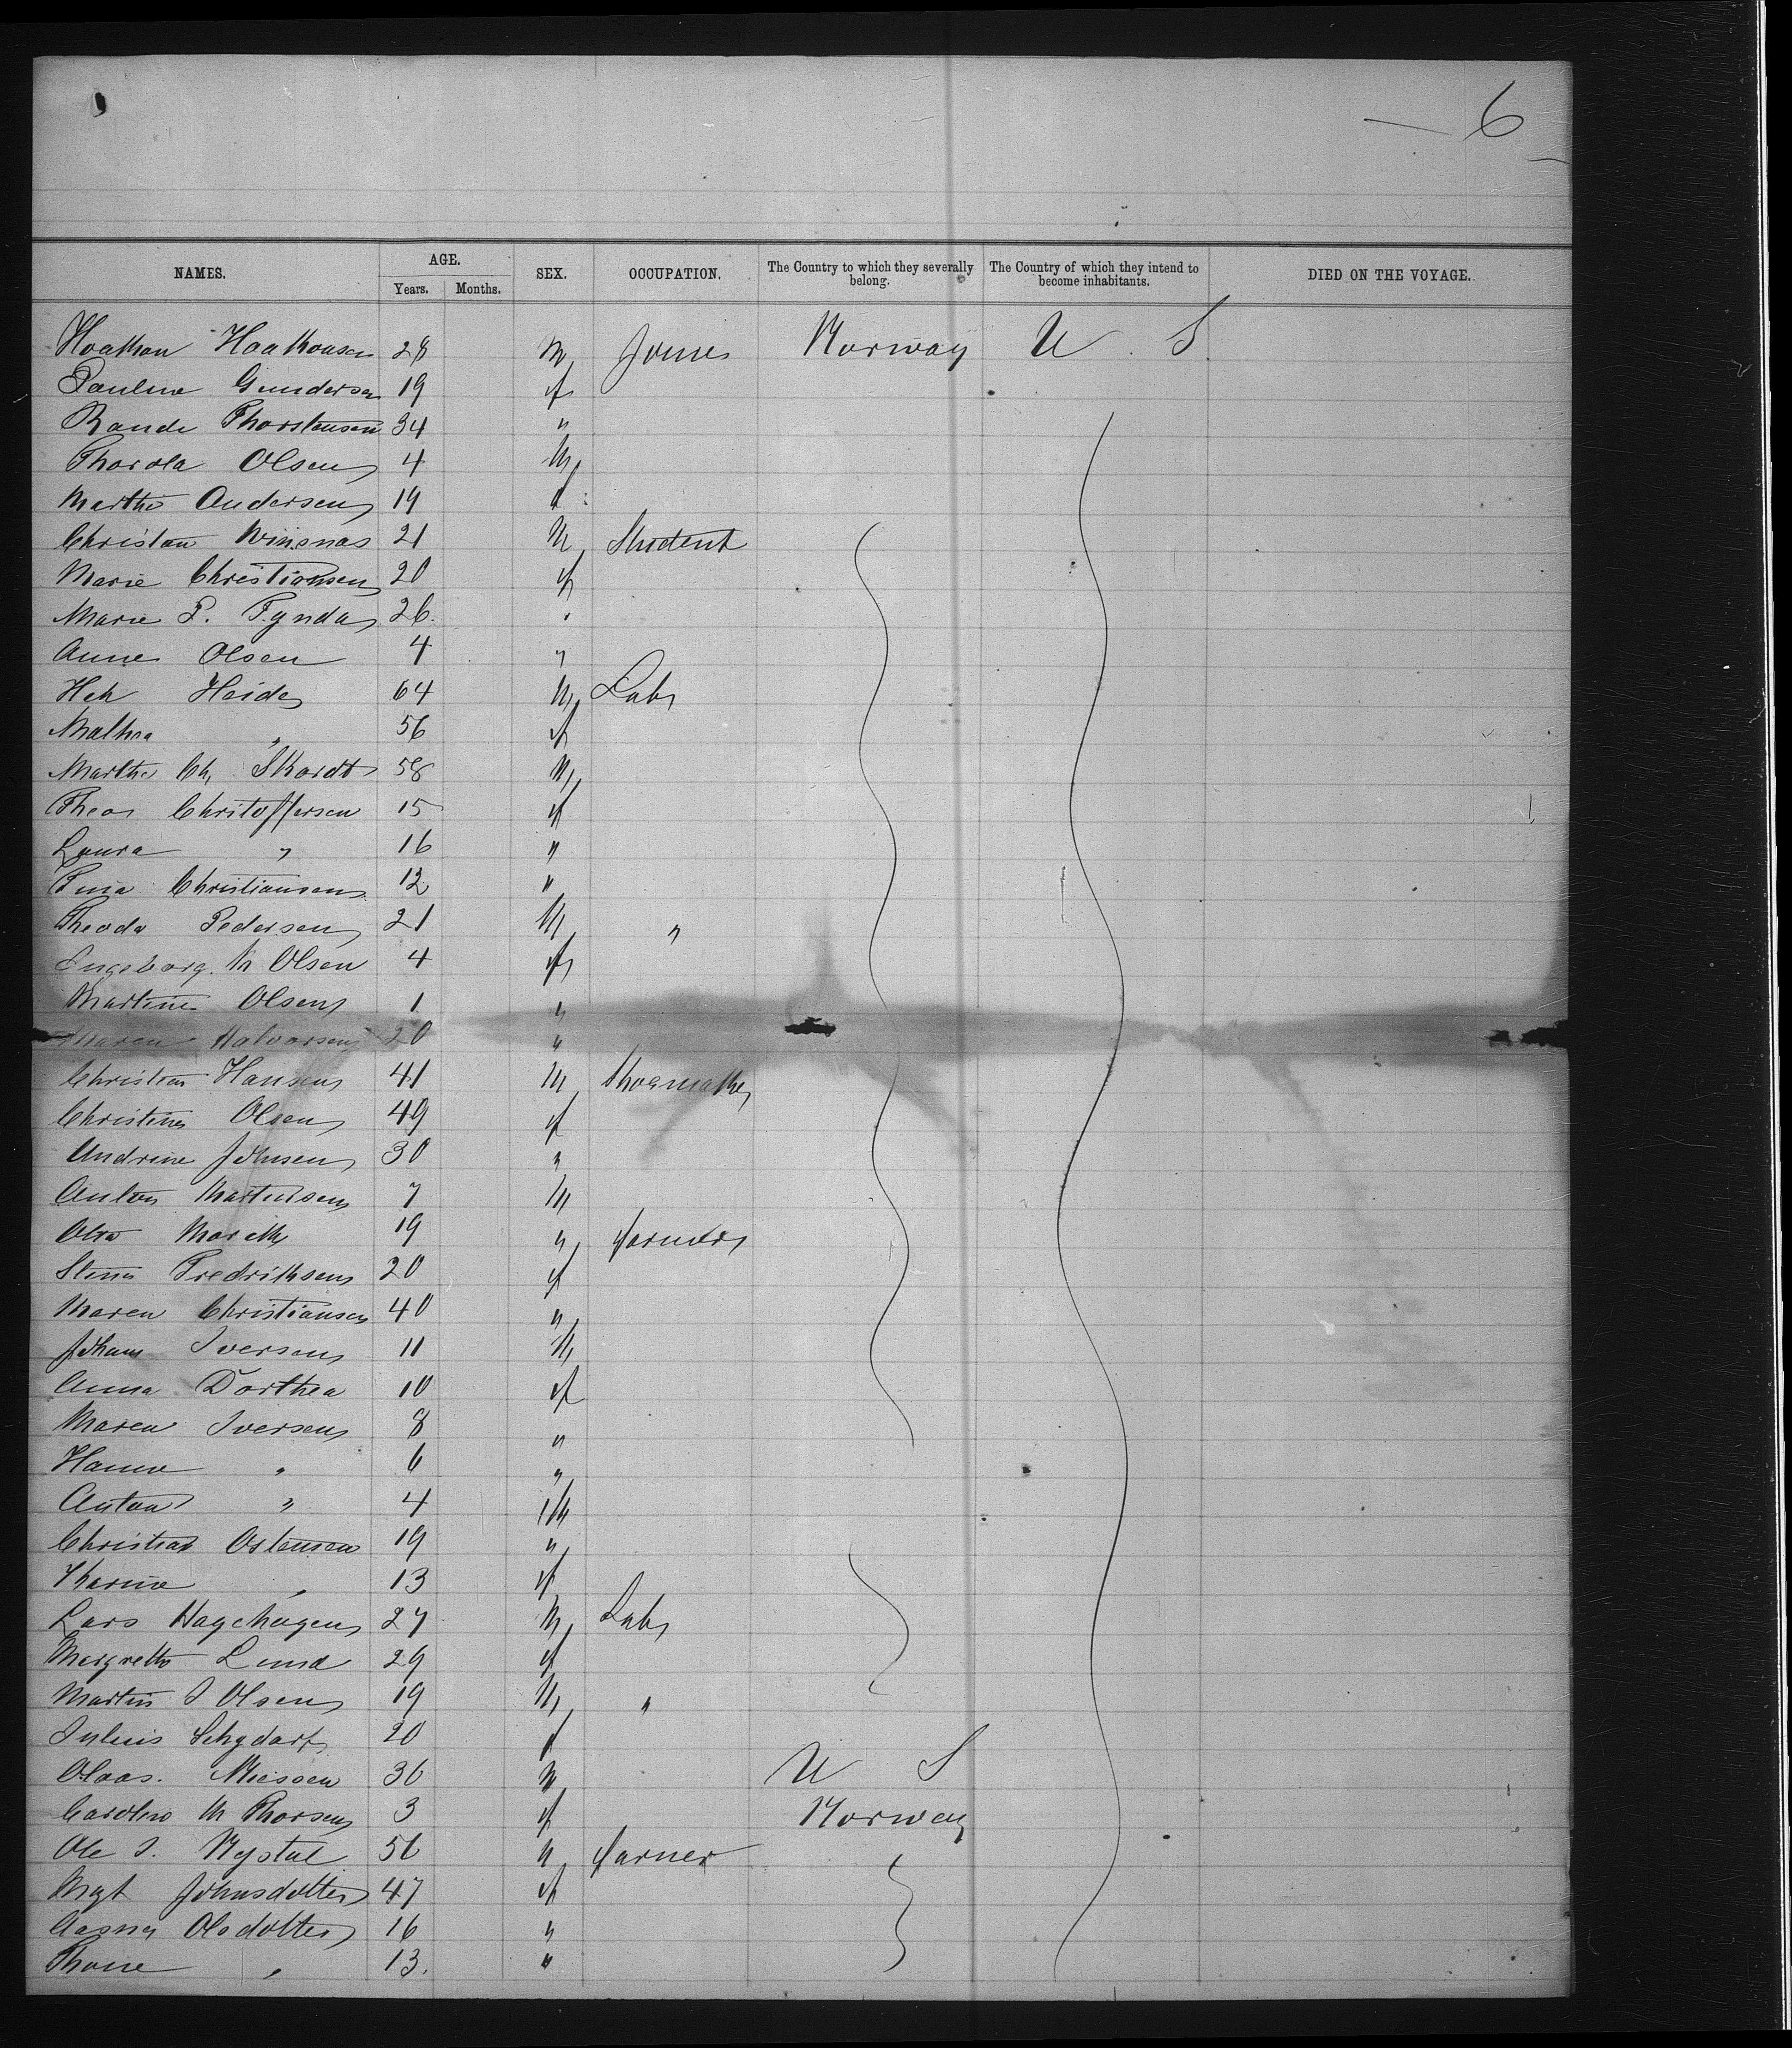 6
NAMES. AGE. Years. Months. SEX. OCCUPATION. The Country to which they severally belong. The Country of which they intend to become inhabitants. DIED ON THE VOYAGE.
Haakon Haakonsen 28 M Joiner Norway U. S.
Pauline Gundersen 19 f
Rande Thorstensen 34 "
Thorola Olsen 4 M
Marthe Andersen 19 f
Christian 21 M Student
Marie Christiansen 20 f
Marie P. Tynda 26 "
Anne Olsen 4 "
Heide 64 M Labr
Mathea " 56 f
Marthe Ch. Skordt 58 M
Thea Christoffersen 15 f
Laura " 16 "
Tina Christiansen 12 "
Theodor Pedersen 21 M "
Ingeborg M Olsen 4 f
Martine Olsen 1 "
Maren Halvorsen 20 "
Christian Hansen 41 M Shoemaker
Christine Olsen 49 f
Andrine Johnsen 30 "
Anton Martinsen 7 M
19 " farmer
Stina Fredriksen 20 f
Maren Christiansen 40 "
Johan Iversen 11 M
Anna Dorthea 10 f
Maren Iversen 8 "
Hanna " 6 "
Anton " 4 M
Christian Ostensen 19 "
Karine " 13 f
Lars Hagehagen 27 M Labr
Margrethe Lund 29 f
Martin J Olsen 19 M "
Julius 20 f
Olaas. Niessen 36 M U S
Caroline M Thorsen 3 f Norway
Ole J. Nystul 56 M farmer
Mgt Johnsdotter 47 f
Aasne Olsdotter 16 "
Thone " 13. "